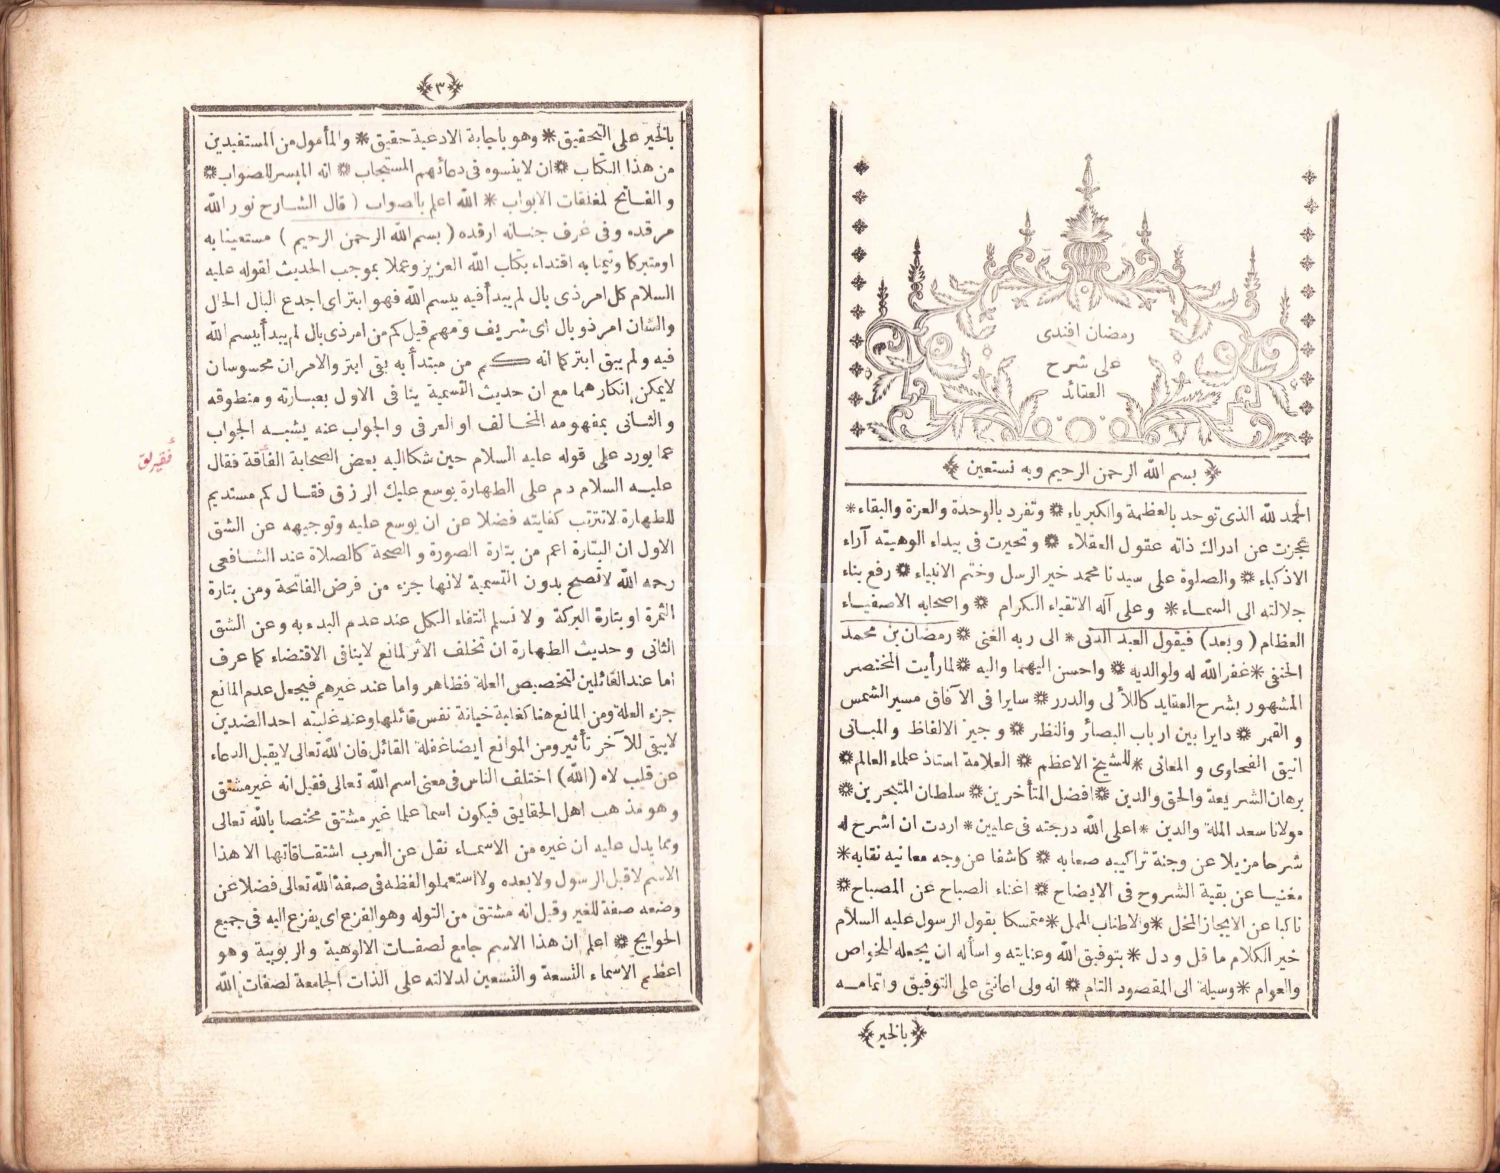 رمضان افندى
على شرح
العقائد
﴿ بسم الله الرحمن الرحيم وبه نستعين ﴾
الحمد لله الذى توحد بالعظمة والكبرياء * وتفرد بالوحدة والعزة والبقاء *
عجزت عن ادراك ذاته عقول العقلاء * وتحيرت فى بيداء الوهيته آراء
الاذكياء * والصلوة على سيدنا محمد خير الرسل وختم الانبياء * رفع بناء
جلالته الى السماء * وعلى آله الاتقياء الكرام * واصحابه الاصفياء
العظام ( وبعد ) فيقول العبد الدنى * الى ربه الغنى * رمضان بن محمد
الحنفى * غفر الله له ولوالديه * واحسن اليهما واليه * لما رأيت المختصر
المشهور بشرح العقايد كاللألى والدرر * سايرا فى الآفاق مسير الشمس
والقمر * دايرا بين ارباب البصائر والنظر * وجيز الالفاظ والمبانى
انيق الفحاوى والمعانى * للشيخ الاعظم * العلامة استاذ علماء العالم *
برهان الشريعة والحق والدين * افضل المتأخرين * سلطان المتبحرين *
مولانا سعد الملة والدين * اعلى الله درجته فى عليين * اردت ان اشرح له
شرحا مزيلا عن وجنة تراكيبه صعابه * كاشفا عن وجه معانيه نقابه *
مغنيا عن بقية الشروح فى الايضاح * اغناء الصباح عن المصباح *
ناكبا عن الايجاز المخل * والاطناب الممل * متمسكا بقول الرسول عليه السلام
خير الكلام ما قل ودل * بتوفيق الله وعنايته واسأله ان يجعله للخواص
والعوام * وسيلة الى المقصود التام * انه ولى اعانتى على التوفيق واتمامه
﴿ بالخير ﴾
﴿ ٣ ﴾
بالخير على التحقيق * وهو باجابة الادعية حقيق * والمأمول من المستفيدين
من هذا الكتاب * ان لاينسوه فى دعائهم المستجاب * انه الميسر للصواب *
والفاتح لمغلقات الابواب * الله اعلم بالصواب ( قال الشارح نور الله
مرقده وفى غرف جنانه ارقده ( بسم الله الرحمن الرحيم ) مستعينا به
اومتبركا وتيمنا به اقتداء بكتاب الله العزيز وعملا بموجب الحديث لقوله عليه
السلام كل امر ذى بال لم يبدأ فيه ببسم الله فهو ابتر اى اجدع البال الحال
والشان امر ذو بال اى شريف ومهم قيل كم من امر ذى بال لم يبدأ ببسم الله
فيه ولم يبق ابتر كما انه كم من مبتدأ به بقى ابتر والامران محسوسان
لايمكن انكارهما مع ان حديث التسمية ينافى الاول بعبارته ومنطوقه
والثانى بمفهومه المخالف او العرفى والجواب عنه يشبه الجواب
عما يورد على قوله عليه السلام حين شكا اليه بعض الصحابة الفاقة فقال
عليه السلام دم على الطهارة يوسع عليك الرزق فقال كم مستديم
للطهارة لاتترتب كفايته فضلا عن ان يوسع عليه وتوجيهه عن الشق
الاول ان البتارة اعم من بتارة الصورة والصحة كالصلاة عند الشافعى
رحمه الله لاتصح بدون التسمية لانها جزء من فرض الفاتحة ومن بتارة
الثمرة او بتارة البركة ولا نسلم انتفاء الكل عند عدم البدء به وعن الشق
الثانى وحديث الطهارة ان تخلف الاثر لمانع لاينافى الاقتضاء كما عرف
اما عند القائلين لتخصيص العلة فظاهر واما عند غيرهم فيجعل عدم المانع
جزء العلة ومن المانع هنا كفاية خيانة نفس قائلها وعند غلبته احد الضدين
لايبقى للآخر تأثير ومن الموانع ايضا غفلة القائل فان الله تعالى لايقبل الدعاء
عن قلب لاه ( الله ) اختلف الناس فى معنى اسم الله تعالى فقيل انه غير مشتق
وهو مذهب اهل الحقايق فيكون اسما علما غير مشتق مختصا بالله تعالى
ومما يدل عليه ان غيره من الاسماء نقل عن العرب اشتقاقاتها الا هذا
الاسم لاقبل الرسول ولا بعده ولا استعملوا لفظه فى صفة الله تعالى فضلا عن
وضعه صفة للغير وقيل انه مشتق من التوله وهو الفزع اى يفزع اليه فى جميع
الحوايج * اعلم ان هذا الاسم جامع لصفات الالوهية والربوبية وهو
اعظم الاسماء التسعة والتسعين لدلالته على الذات الجامعة لصفات الله
فقيرلق